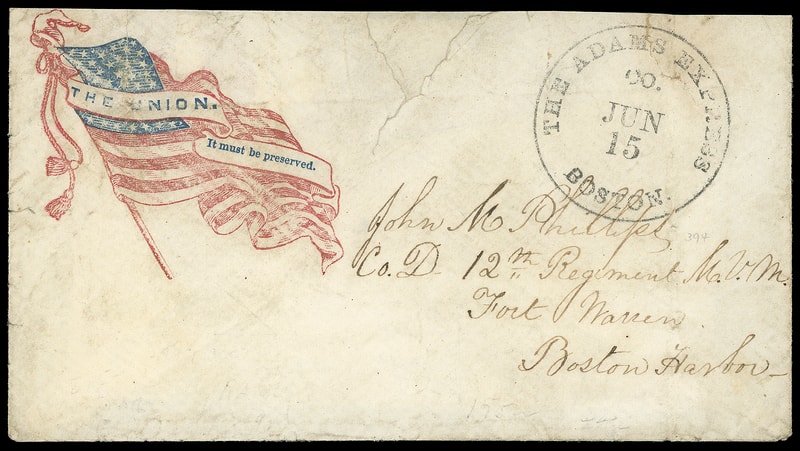 THE UNION.
It must be preserved.
THE ADAMS EXPRESS
CO.
JUN
15
BOSTON.
John M Phillips
394
Co. D. 12th Regiment M.V.M.
Fort Warren
Boston Harbor